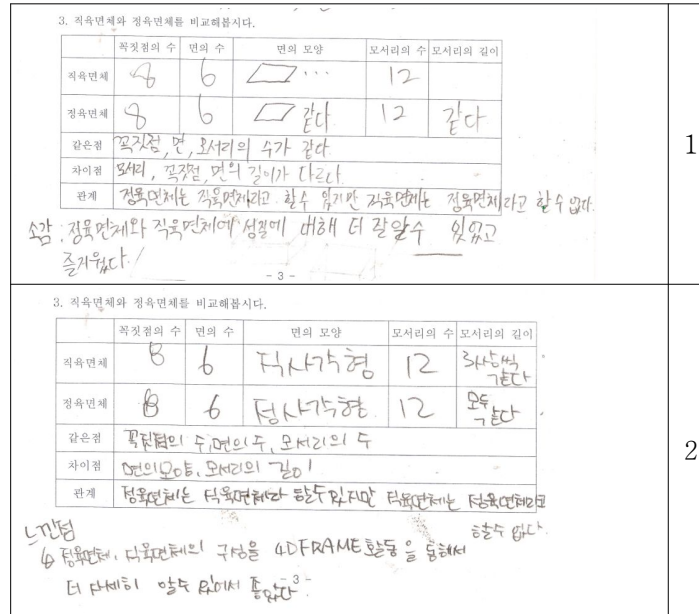 3. 직육면체와 정육면체를 비교해봅시다.
꼭짓점의 수 면의 수 면의 모양 모서리의 수 모서리의 길이
직육면체 8 6 ... 12
정육면체 8 6 같다 12 같다
같은점 꼭짓점, 면, 모서리의 수가 같다.
차이점 모서리, 꼭짓점, 면의 길이가 다르다.
관계 정육면체는 직육면체라고 할수 있지만 직육면체는 정육면체라고 할수 없다.
소감 : 정육면체와 직육면체에 성질에 대해 더 잘알수 있었고
즐거웠다.
- 3 -
1
3. 직육면체와 정육면체를 비교해봅시다.
꼭짓점의 수 면의 수 면의 모양 모서리의 수 모서리의 길이
직육면체 8 6 직사각형 12 같다
정육면체 8 6 정사각형 12 모두 같다
같은점 꼭짓점의 수, 면의 수, 모서리의 수
차이점 면의 모양, 모서리의 길이
관계 정육면체는 직육면체라 할수 있지만 직육면체는 정육면체라고
할수 없다.
느낀점
정육면체, 직육면체의 구성을 4DFRAME활동을 통해서
더 자세히 알수 있어서 좋았다.
- 3 -
2